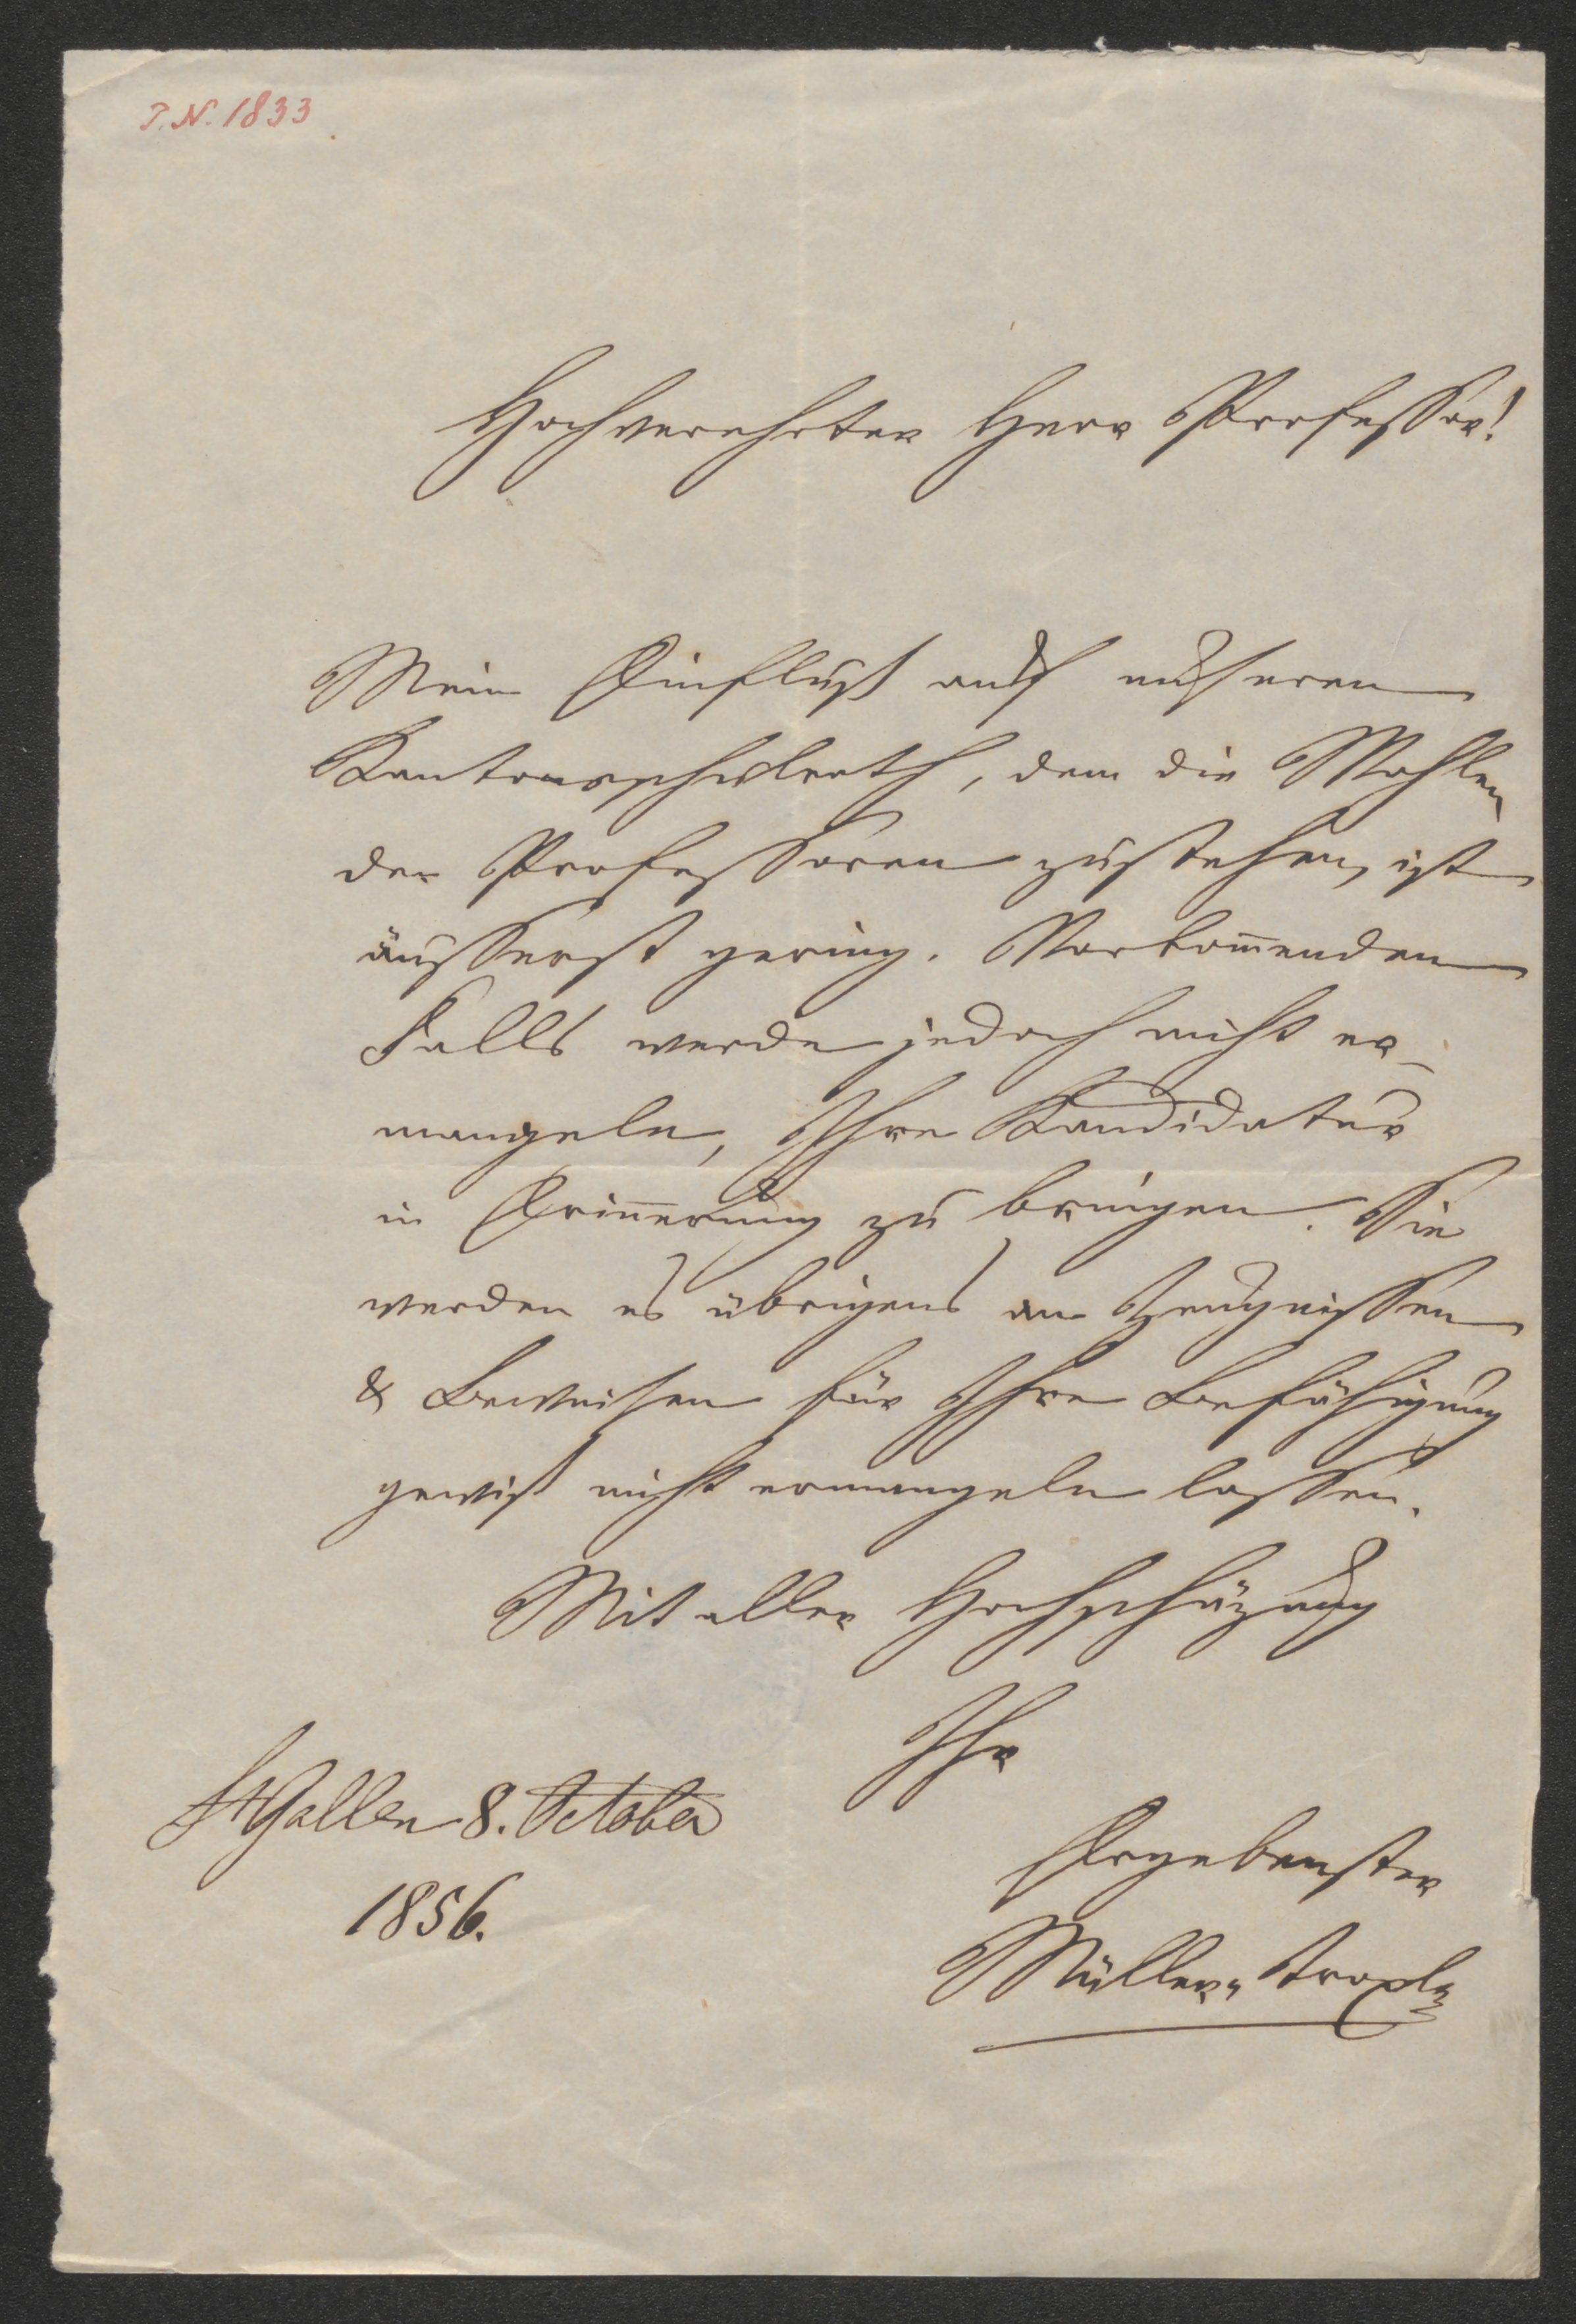 P. N. 1833
Hochverehrter Herr Professor!
Mein Einfluß auf unseren
Kantonsschulrath, dem die Wahlen
der Professoren zustehen, ist
äusserst gering. Vorkom̅enden
Falls werde jedoch nicht er-
mangeln, Ihre Kandidatur
in Erin̅erung zu bringen. Sie
werden es übrigens an Zeugnissen
& Beweisen für Ihre Befähigung
gewiß nicht ermangeln lassen.
Mit aller Hochschäzung
Ihr
St Gallen 8. October
1856.
Ergebenster
Müller,